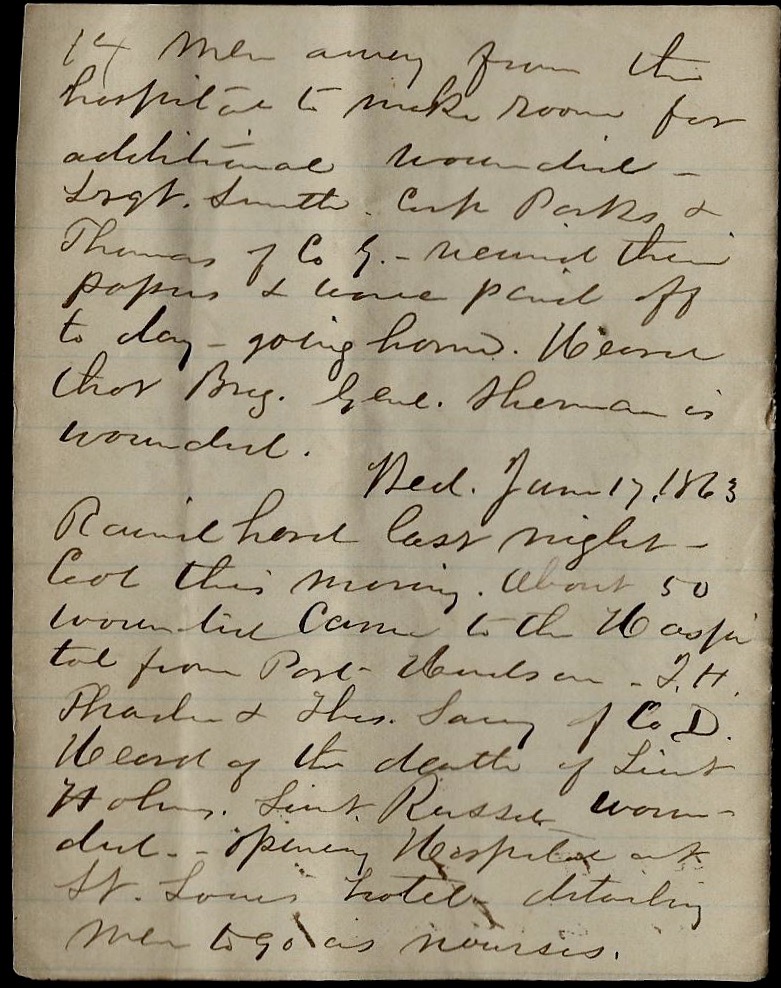 14 men away from the
hospital to make room for
additional wounded -
Sergt. Smith. Corp Parks &
Thomas of Co G. - received their
papers & were paid off
to day - going home. Heard
that Brig. Gene. Sherman is
wounded.
Wed. June 17, 1863
Rained hard last night -
Cool this morning. About 50
wounded Came to the Hospi
tal from Port Hudson - J. H.
& Thos. of Co D.
Heard of the death of Lieut
Holmes. Lieut. Russell woun-
ded. - opening Hospital at
St. Louis hotel - detailing
men to go as nourses.